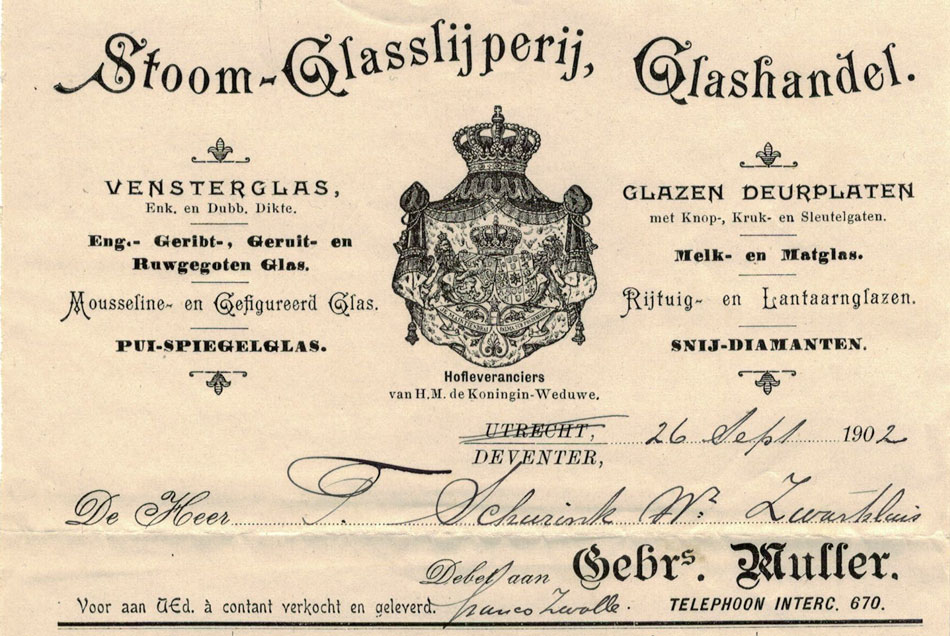 Stoom-Glasslijperij, Glashandel.
VENSTERGLAS,
Enk. en Dubb. Dikte.
Eng.- Geribt-, Geruit- en
Ruwgegoten Glas.
Mousseline- en Gefigureerd Glas.
PUI-SPIEGELGLAS.
GLAZEN DEURPLATEN
met Knop-, Kruk- en Sleutelgaten.
Melk- en Matglas.
Rijtuig- en Lantaarnglazen.
SNIJ-DIAMANTEN.
Hofleveranciers
van H.M. de Koningin-Weduwe.
UTRECHT, 26 Sept 1902
DEVENTER,
De Heer T. Schurink Wr. Zwartsluis
Debet aan Gebrs. Muller.
Voor aan UEd. à contant verkocht en geleverd. franco Zwolle. TELEPHOON INTERC. 670.